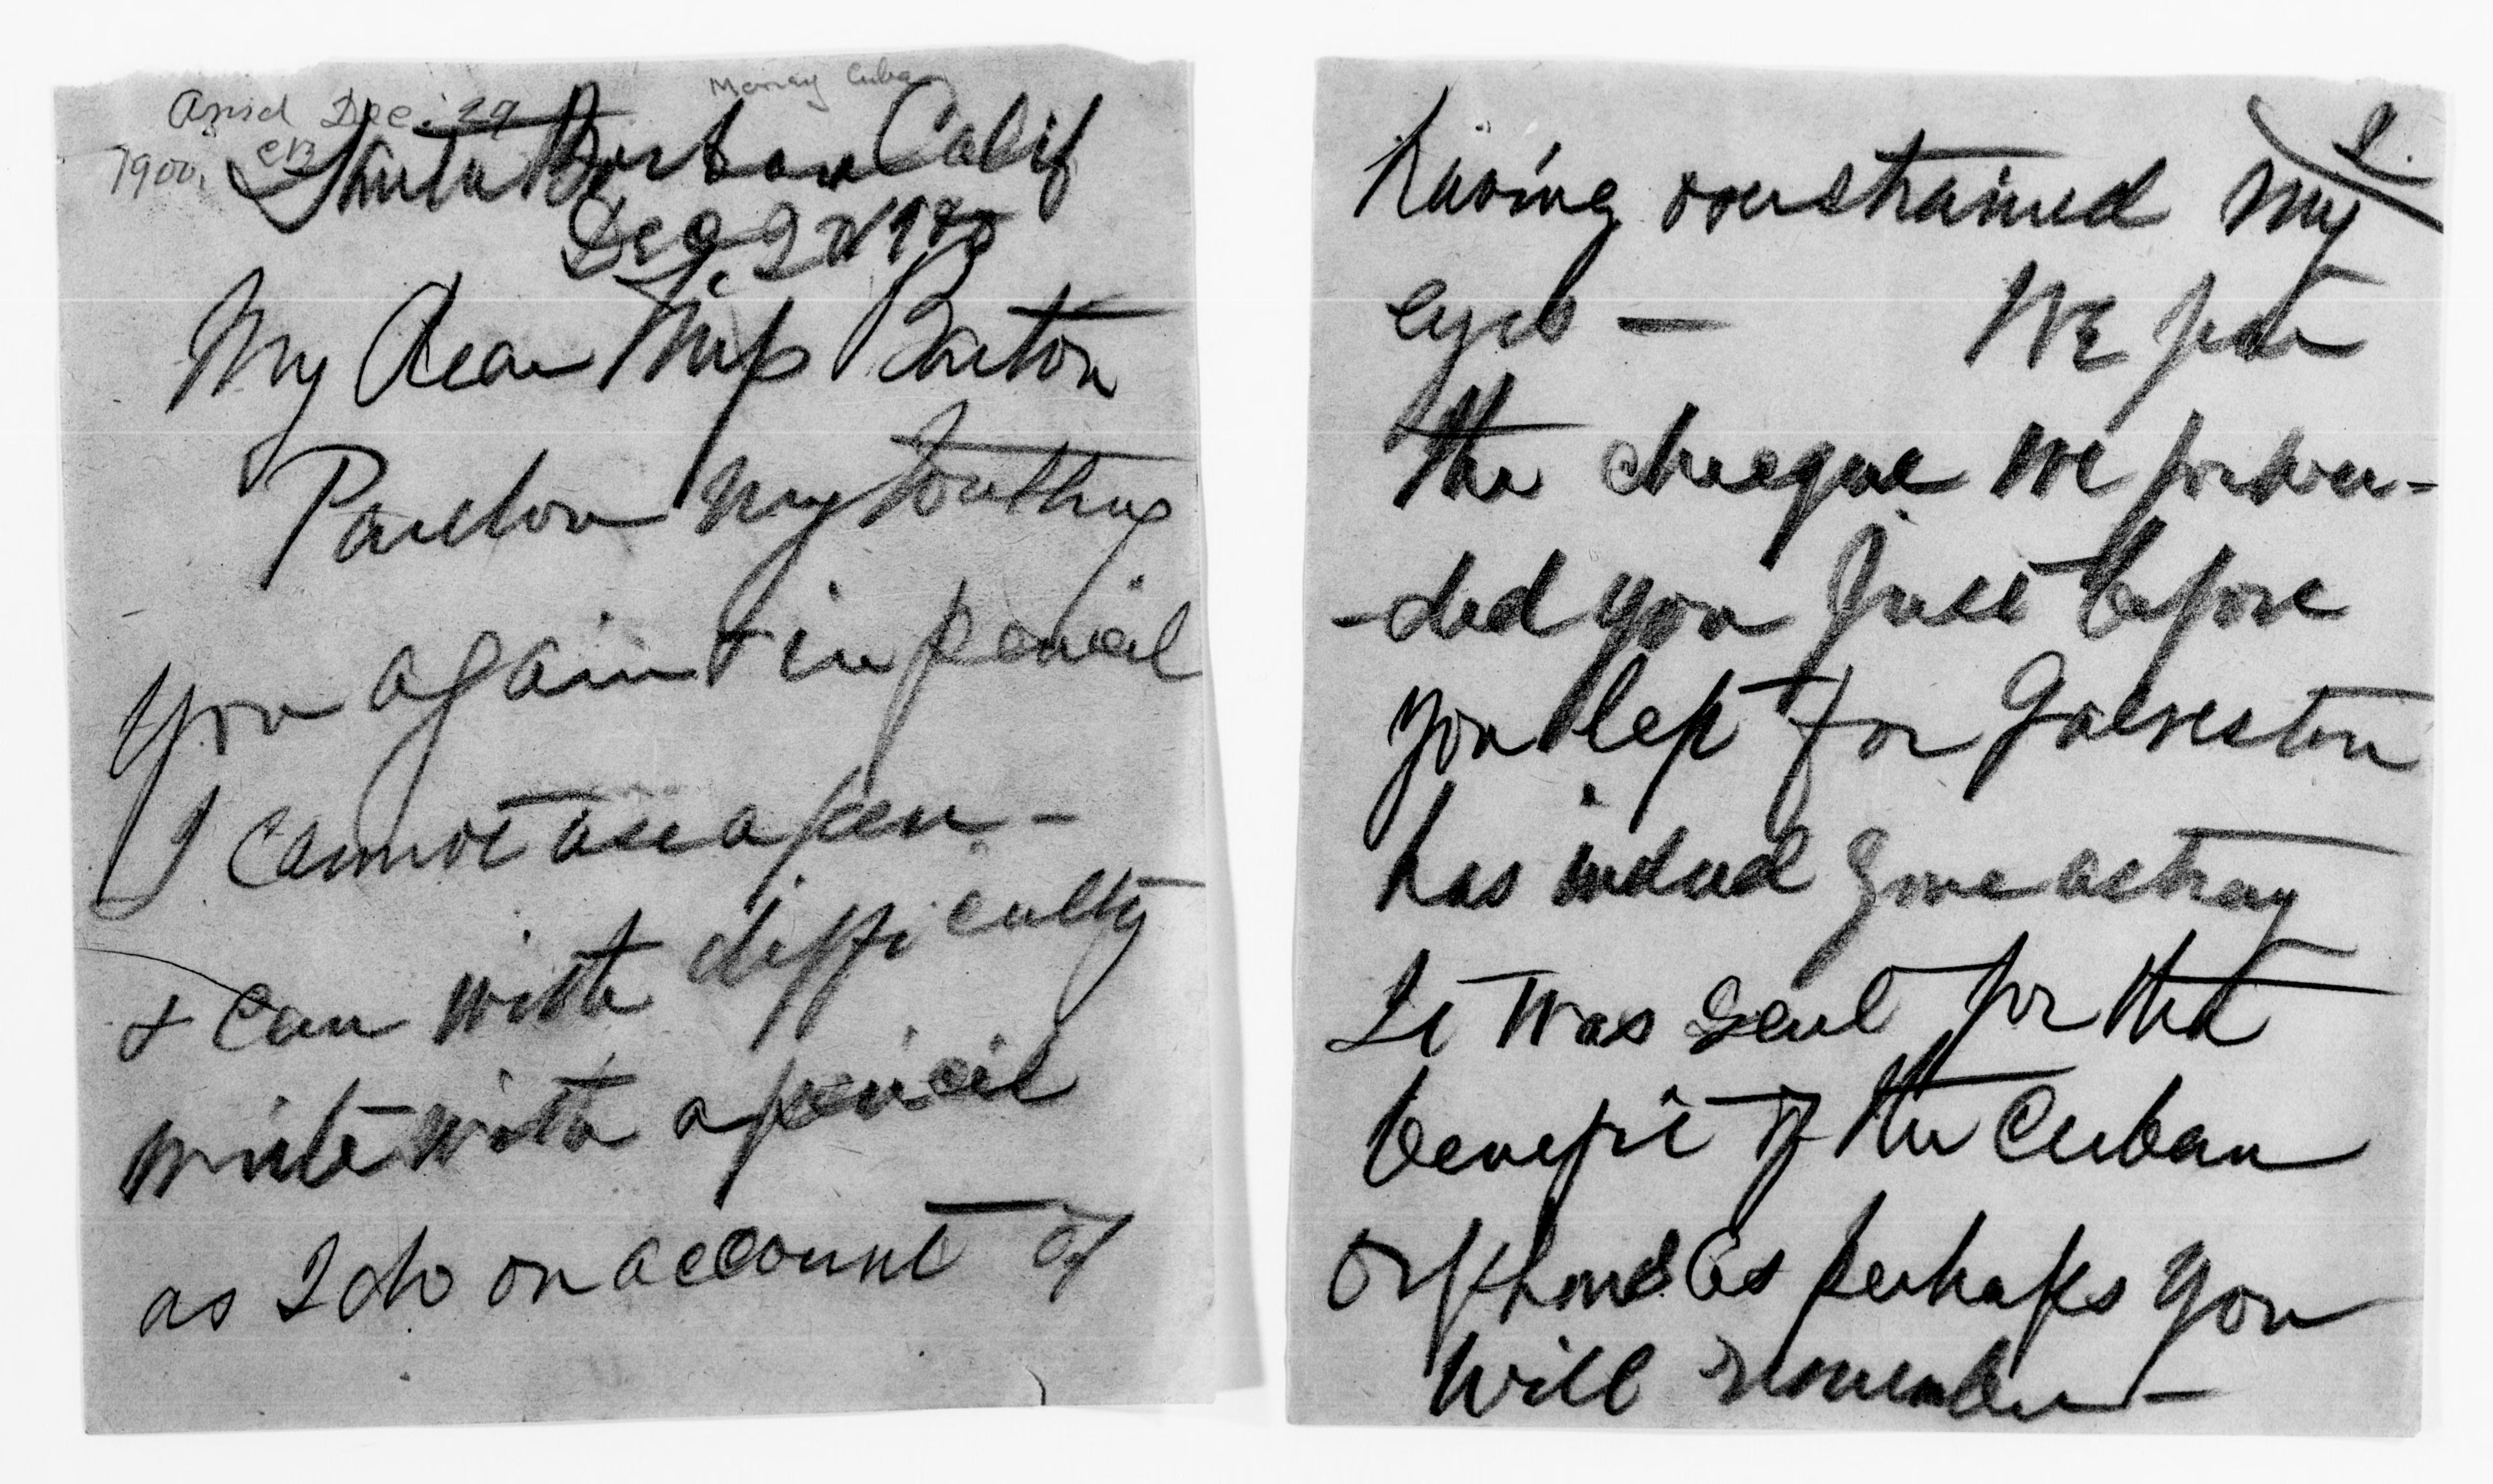 Money Cuba
Ansd Dec. 29
1900. CB
Santa Barbara Calif
Dec. 22d 1900
My dear Miss Barton
Pardon my
you again & in pencil
I cannot use a pen -
& can with difficulty
write with a pencil
as I do on account of
2.
having overstrained my
eyes — We fear
the cheque we forwar-
-ded you just before
you left for Galveston
has indeed gone astray
It was sent for the
benefit of the Cuban
Orphans as perhaps you
will remember —